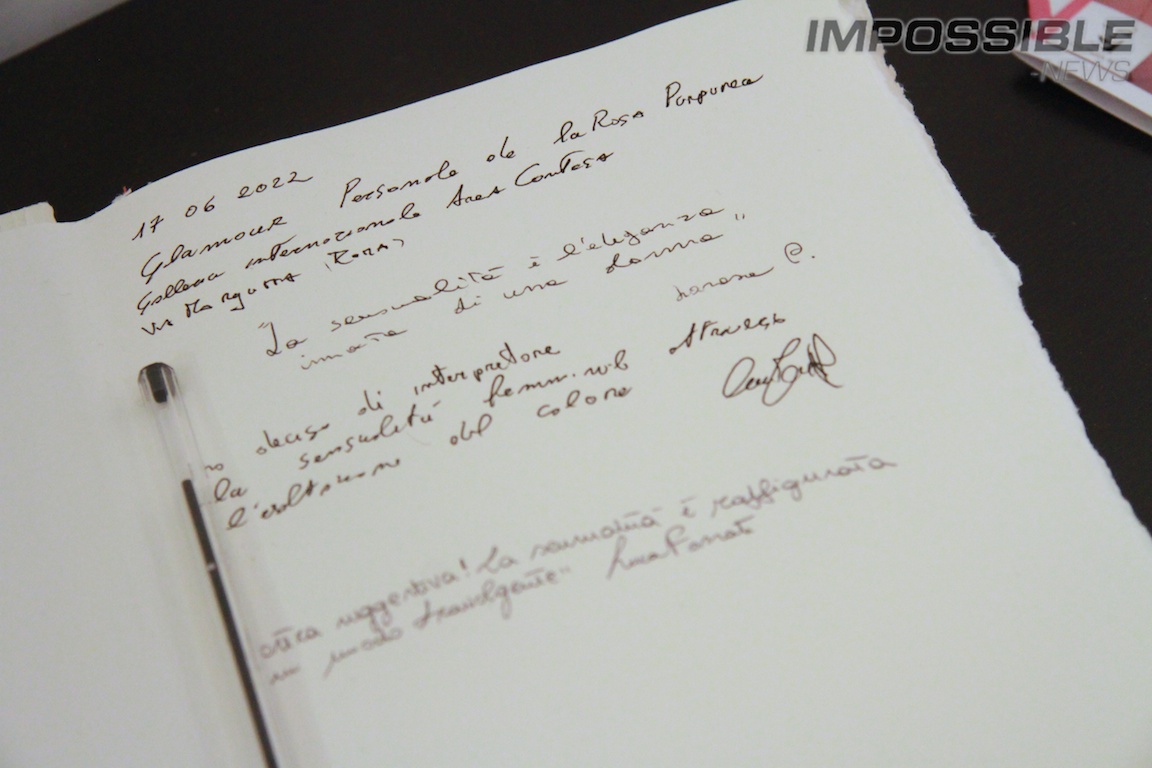 IMPOSSIBLE
-NEWS
17 06 2022
Glamour Personale de la Rosa Purpurea
Galleria internazionale Area Contesa
Via Margutta (Roma)
"La sensualità è l'eleganza
innata di una donna"
C.
deciso di interpretare
la sensualità femminile attraverso
l'esaltazione del colore
suggestiva! La sensualità è raffigurata
in modo travolgente" Luca